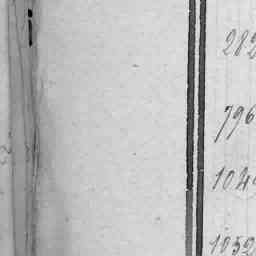 282
796
104
1052